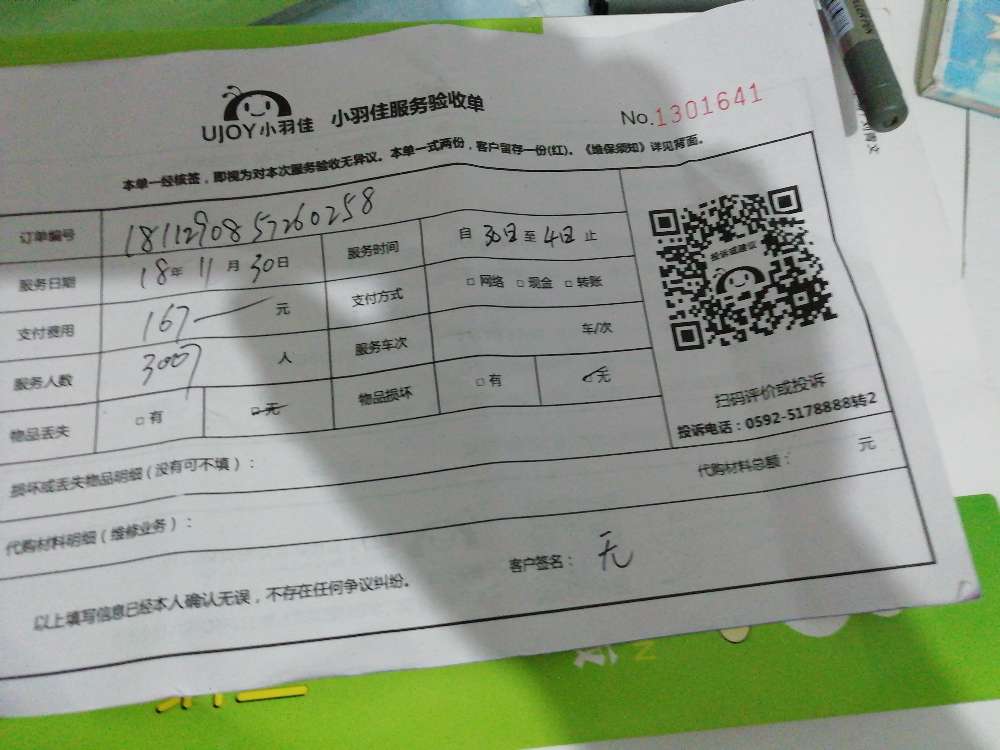 UJOY小羽佳 小羽佳服务验收单 No.1301641
本单一经核签，即视为对本次服务验收无异议。本单一式两份，客户留存一份(红)。《维保须知》详见背面。
订单编号 1811290857260258
服务日期 18年11月30日 服务时间 自 30日 至 4日 止
支付费用 167 元 支付方式 □网络 □现金 □转账
服务人数 3007 人 服务车次 车/次
物品丢失 □有 □无 物品损坏 □有 □无
投诉或建议
扫码评价或投诉
投诉电话：0592-5178888转2
损坏或丢失物品明细（没有可不填）：
代购材料明细（维修业务）： 代购材料总额： 元
以上填写信息已经本人确认无误，不存在任何争议纠纷。 客户签名： 无